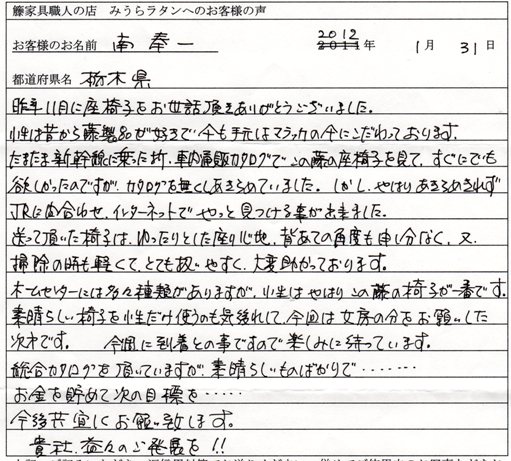 籐家具職人の店 みうらラタンへのお客様の声
お客様のお名前 南 奉一 2012 2011年 1月 31日
都道府県名 栃木県
昨年11月に座椅子をお世話頂きありがとうございました。
小生は昔から藤製品が好きで今も手元はマラッカの
今にこだわっております。
たまたま新幹線に乗った折、車内通販カタログでこの藤の座椅子を見て、すぐにでも
欲しかったのですが、カタログを無くしあきらめていました。しかし、やはりあきらめきれず
JRに問合わせ、インターネットでやっと見つける事が出来ました。
送って頂いた椅子は、ゆったりとした座り心地、背あての角度も申し分なく、又、
掃除の時も軽くて、とても扱いやすく、大変助かっております。
ホームセンターには多々種類がありますが、小生はやはりこの藤の椅子が一番です。
素晴らしい椅子を小生だけ使うのも気後れして、今回は女房の分をお願いした
次第です。 今週に到着との事ですので楽しみに待っています。
総合カタログを頂いていますが、素晴らしいものばかりで・・・・・・・・
お金を貯めて次の目標を・・・・・
今後共宜しくお願い致します。
貴社、益々のご発展を!!